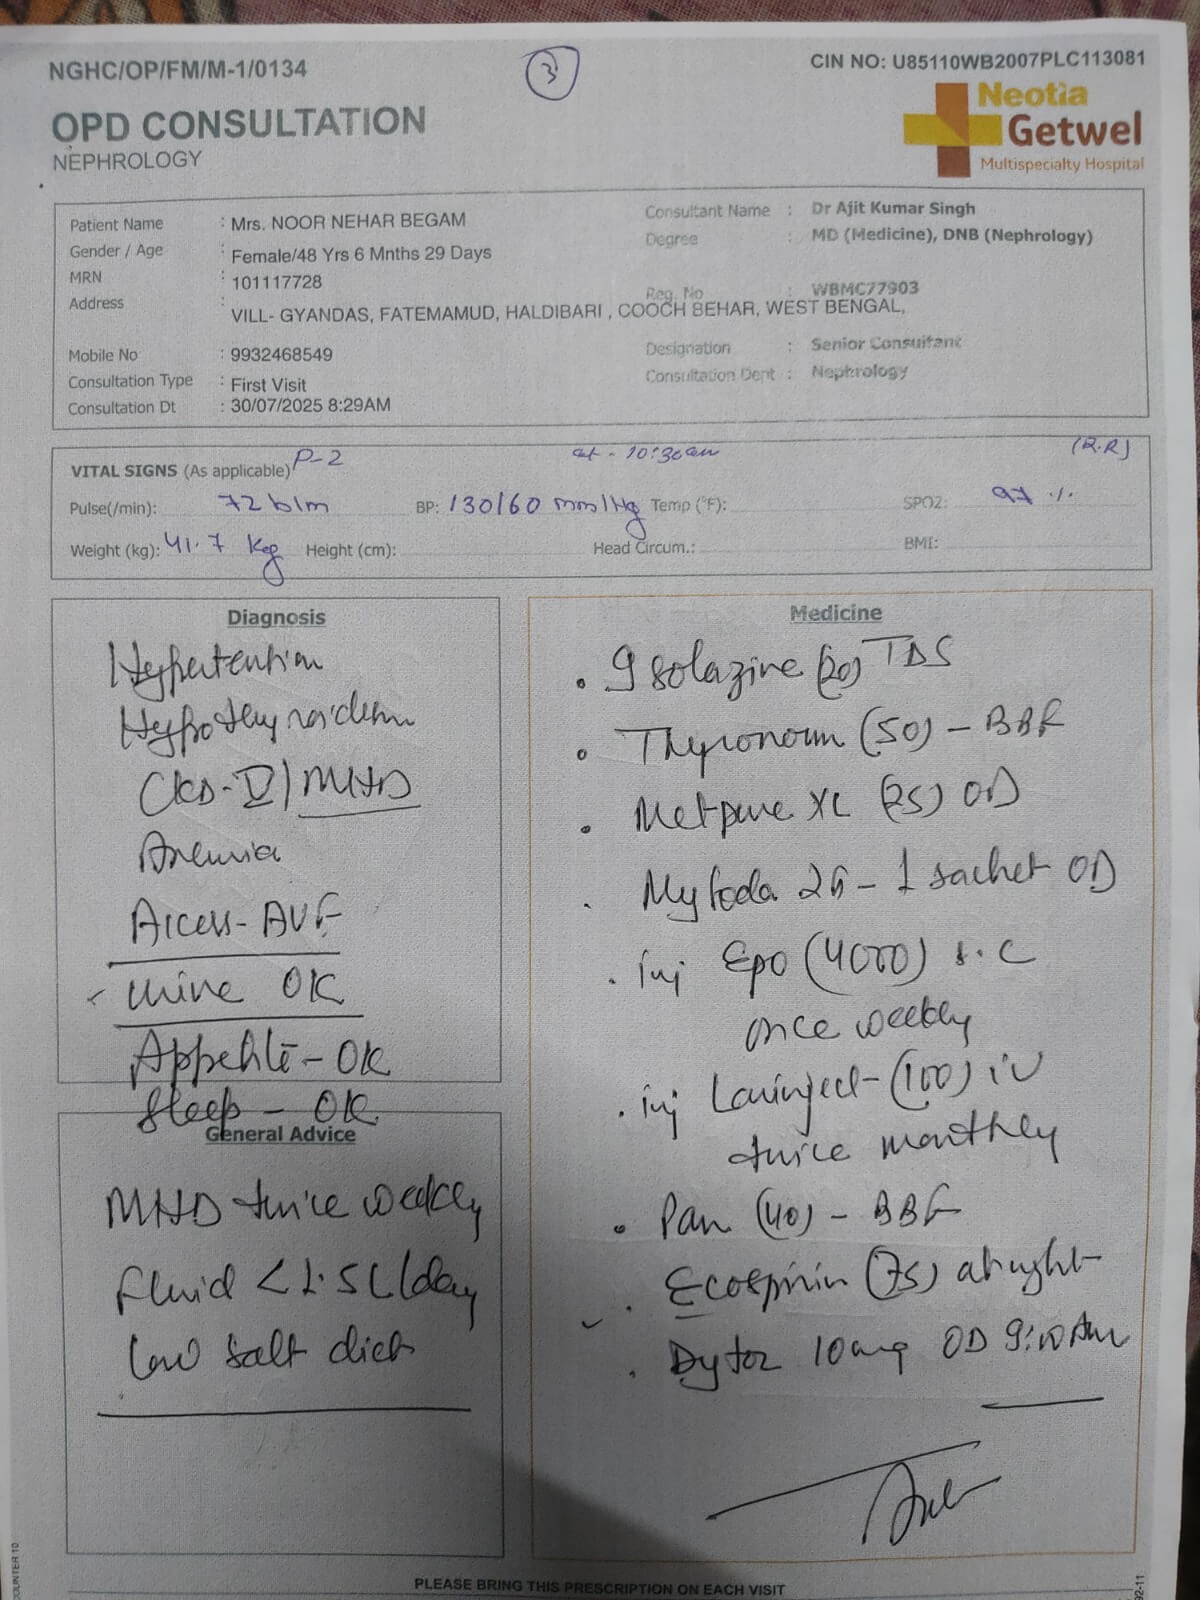 NGHC/OP/FM/M-1/0134
3
CIN NO: U85110WB2007PLC113081
OPD CONSULTATION
NEPHROLOGY
Neotia
Getwel
Multispecialty Hospital
Patient Name : Mrs. NOOR NEHAR BEGAM
Gender / Age : Female/48 Yrs 6 Mnths 29 Days
MRN : 101117728
Address : VILL- GYANDAS, FATEMAMUD, HALDIBARI , COOCH BEHAR, WEST BENGAL,
Mobile No : 9932468549
Consultation Type : First Visit
Consultation Dt : 30/07/2025 8:29AM
Consultant Name : Dr Ajit Kumar Singh
Degree : MD (Medicine), DNB (Nephrology)
Reg. No : WBMC77903
Designation : Senior Consultant
Consultation Dept : Nephrology
VITAL SIGNS (As applicable) P-2 at - 10:30am (R.R)
Pulse(/min): 72 b/m BP: 130/60 mm/Hg Temp (°F): SPO2: 97 %
Weight (kg): 41.7 Kg Height (cm): Head Circum.: BMI:
Diagnosis
Hypertention
Hypothyroidism
CKD-V/MHD
Anemia
Access- AVF
Urine OK
Appetite - OK
Sleep - OK
General Advice
MHD twice weekly
Fluid < 1.5L/day
Low salt diet
Medicine
Isolazine (20) TDS
Thyronorm (50) - BBF
Metpure XL (25) OD
Mysoda 2G - 1 sachet OD
inj Epo (4000) s.c
once weekly
inj (100) iv
twice monthly
Pan (40) - BBF
Ecosprin (75) at night
Dytor 10mg OD 9:00 Am
PLEASE BRING THIS PRESCRIPTION ON EACH VISIT
COUNTER 10
92-11